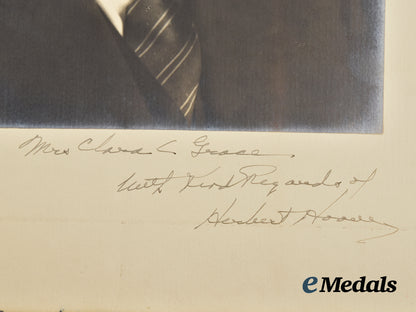 Mrs Clara L Grace.
With Kind Regards of
Herbert Hoover
eMedals